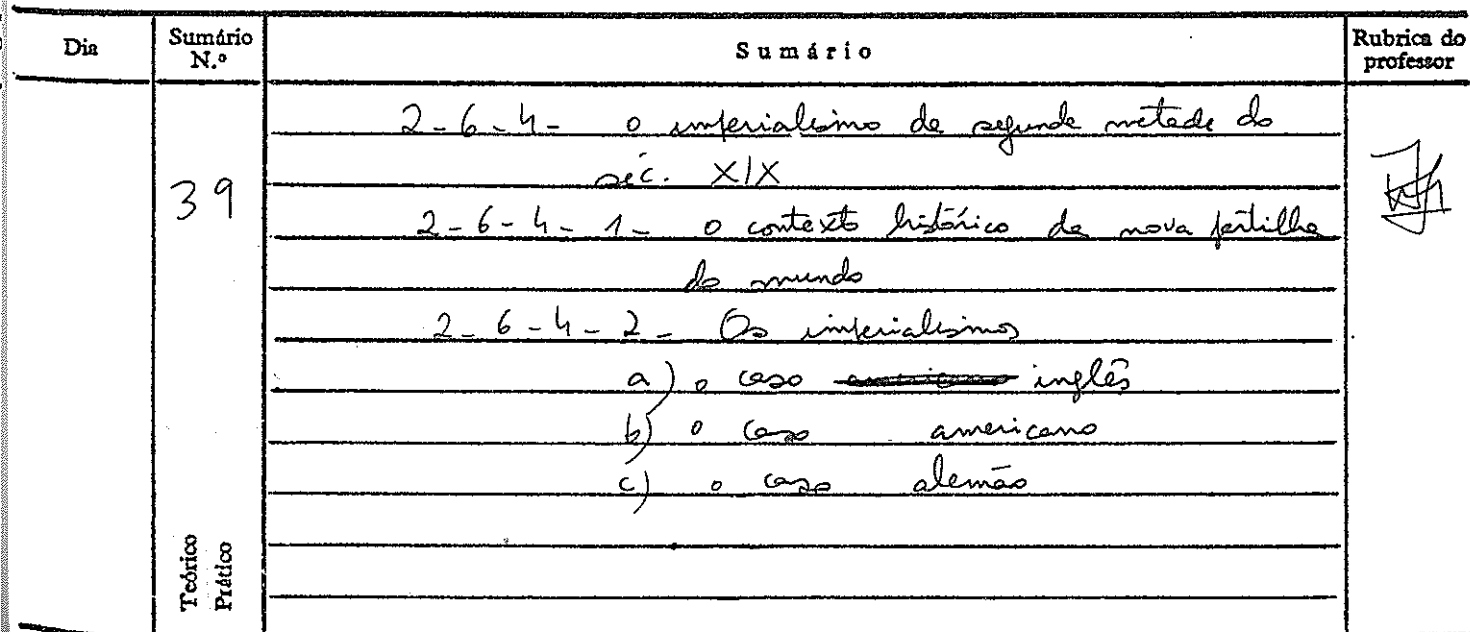 Dia Sumário N.º Sumário Rubrica do professor
2-6-4- o imperialismo da segunda metade do
séc. XIX
39
2-6-4-1- o contexto histórico da nova partilha
do mundo
2-6-4-2- Os imperialismos
a) o caso inglês
b) o caso americano
c) o caso alemão
Teórico
Prático